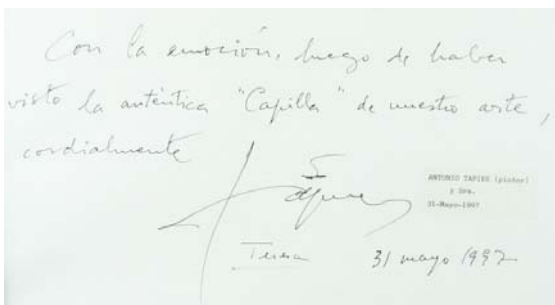 Con la emoción, luego de haber
visto la auténtica "Capilla" de nuestro arte,
cordialmente
Tàpies
ANTONIO TAPIES (pintor)
y Sra.
31-Mayo-1997
Teresa
31 mayo 1997